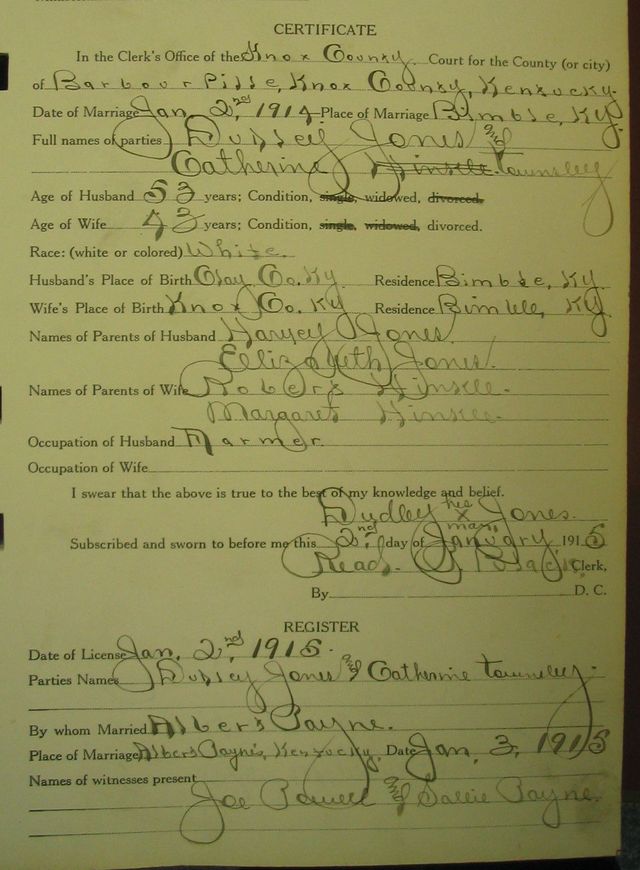 CERTIFICATE
In the Clerk's Office of the Knox County. Court for the County (or city)
of Barbourville, Knox County, Kentucky.
Date of Marriage Jan. 2nd, 1914 Place of Marriage Bimble, Ky.
Full names of parties Dudley Jones and
Catherine Hinkle Townsley
Age of Husband 53 years; Condition, single, widowed, divorced.
Age of Wife 43 years; Condition, single, widowed, divorced.
Race: (white or colored) White.
Husband's Place of Birth Clay Co. Ky. Residence Bimble, Ky.
Wife's Place of Birth Knox Co. Ky Residence Bimble, Ky
Names of Parents of Husband Harvey Jones.
Ellizabeth Jones.
Names of Parents of Wife Robert Hinkle.
Margaret Hinkle.
Occupation of Husband Farmer.
Occupation of Wife
I swear that the above is true to the best of my knowledge and belief.
his
Dudley x Jones.
mark
Subscribed and sworn to before me this 2nd day of January, 1915
Read. Clerk,
By D. C.
REGISTER
Date of License Jan. 2nd, 1915.
Parties Names Dudley Jones and Catherine Townsley.
By whom Married Albert Payne.
Place of Marriage Albert Payne's, Kentucky. Date Jan. 3, 1915
Names of witnesses present
Joe Powell and Sallie Payne.